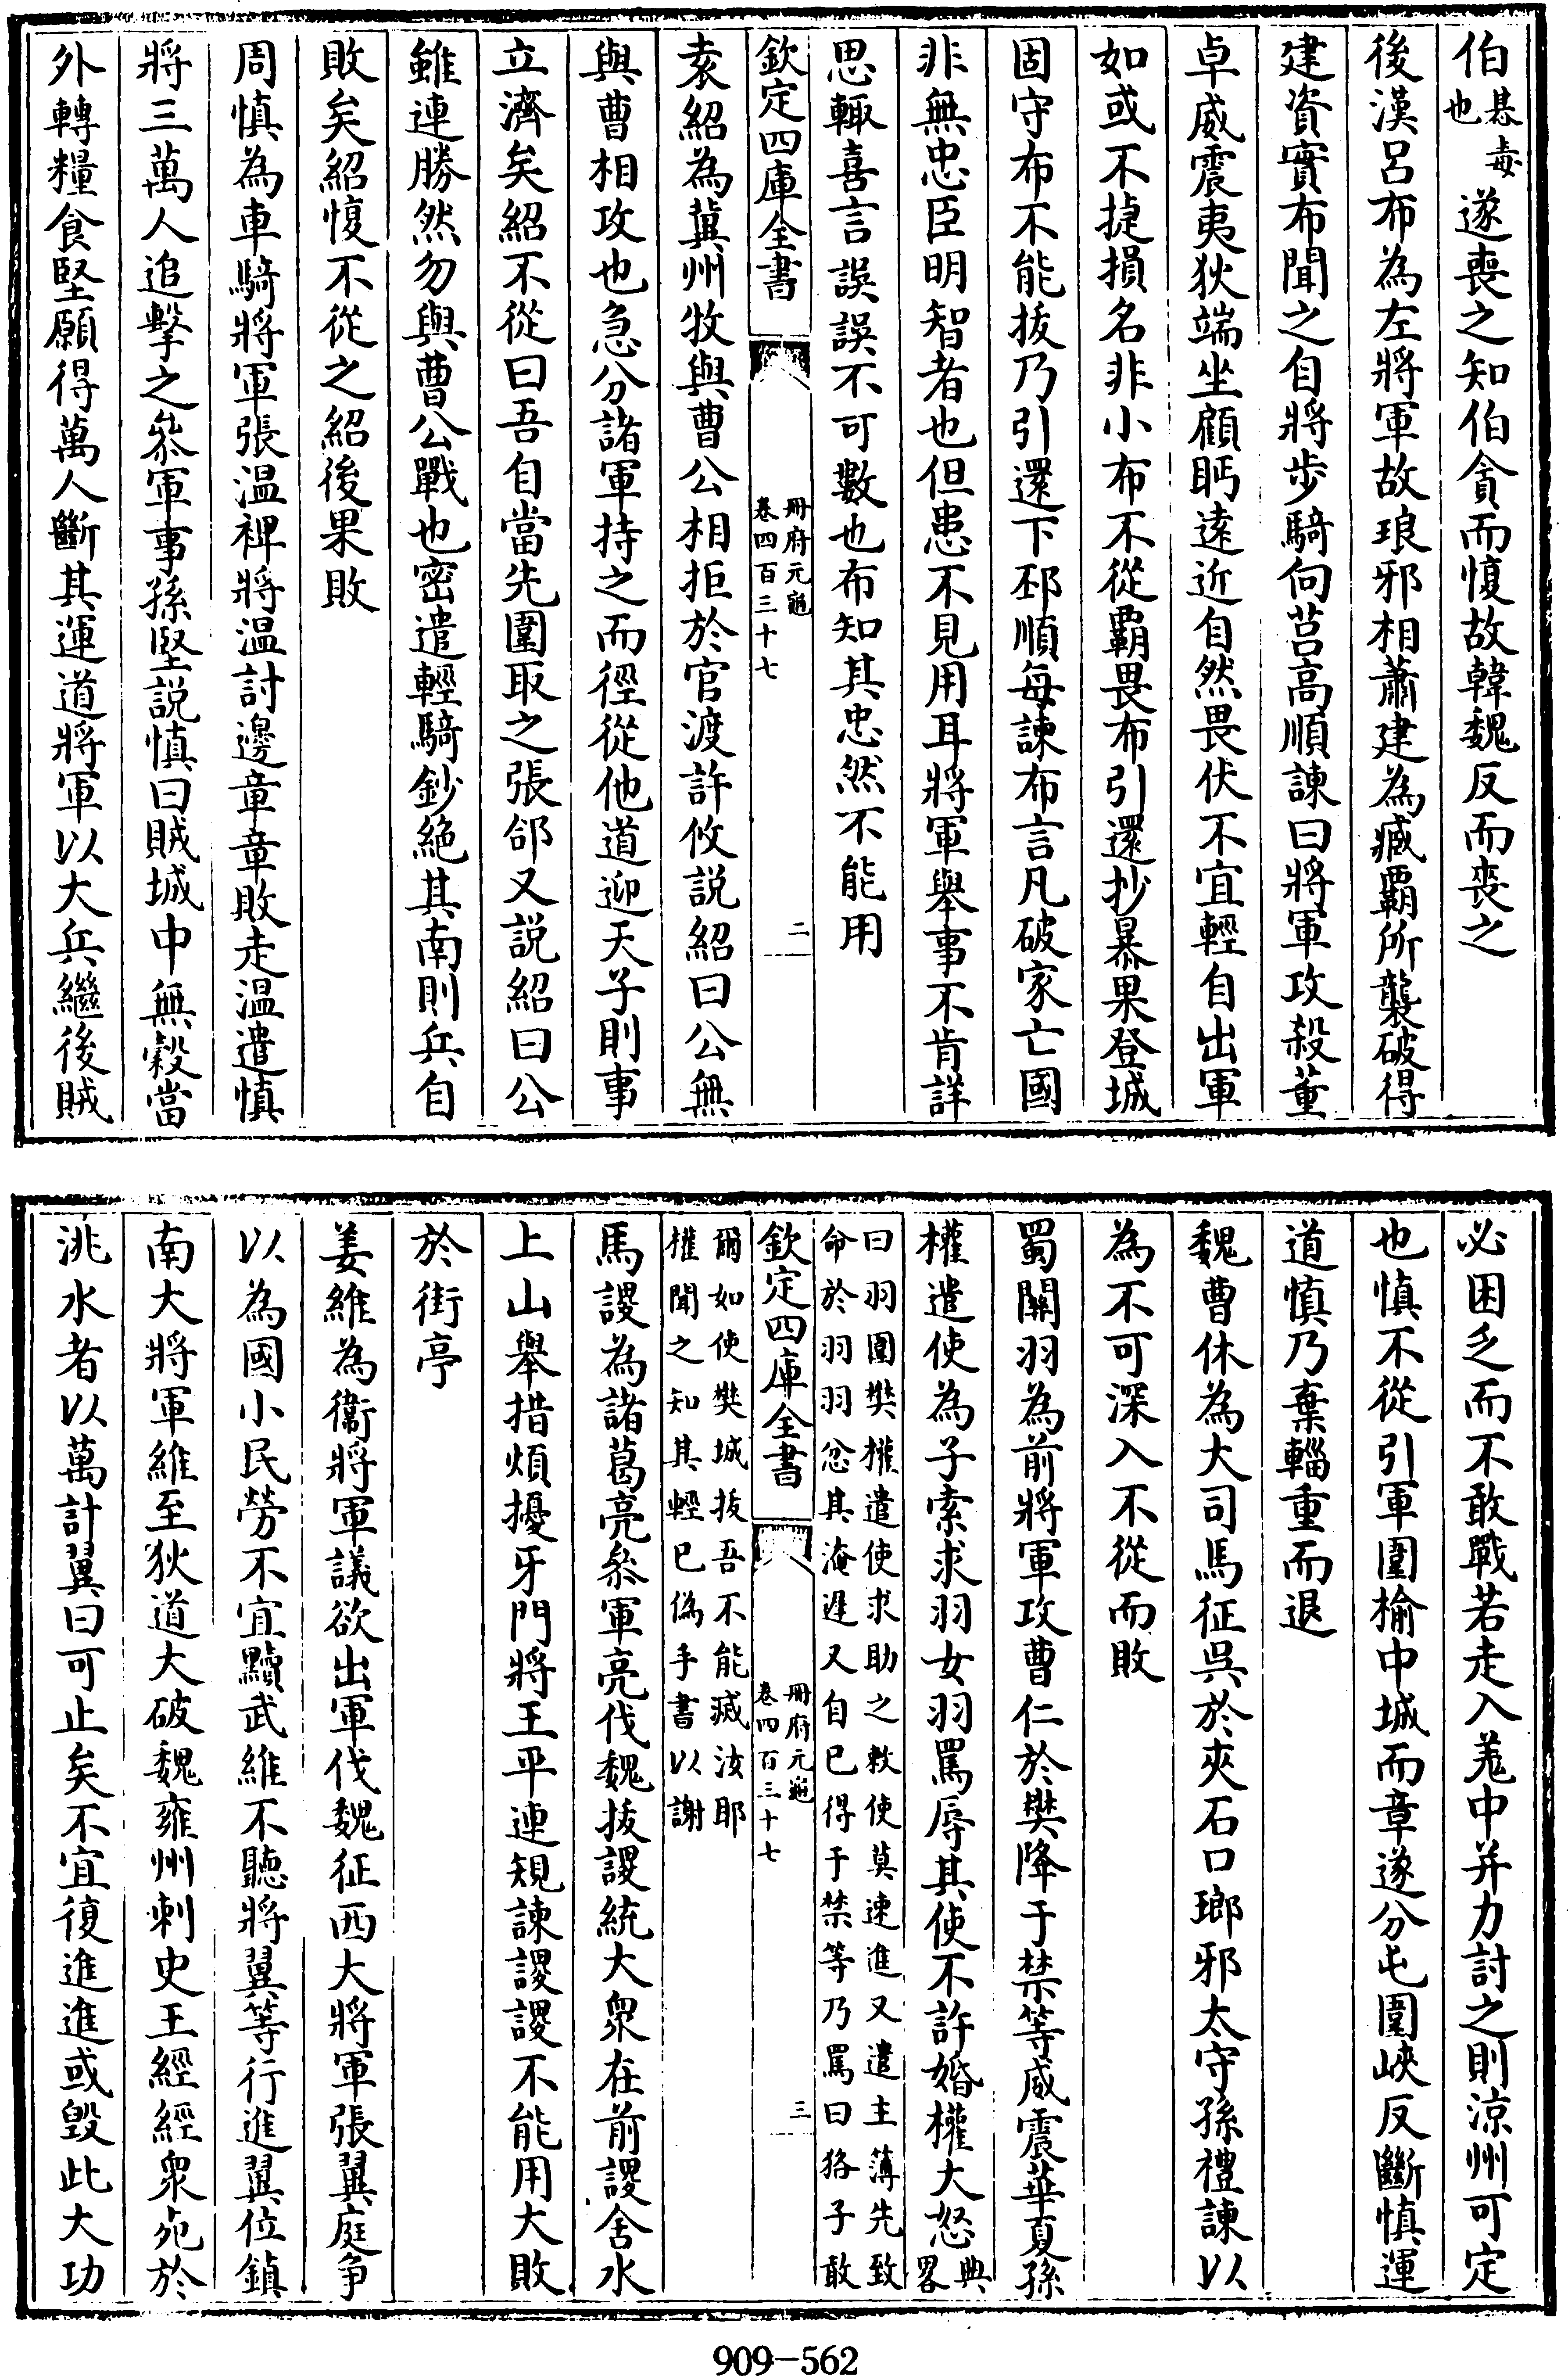 伯惎毒也遂喪之知伯貪而愎故韓魏反而喪之
後漢呂布為左將軍故琅邪相蕭建為臧霸所襲破得
建資實布聞之自將步騎向莒高順諫曰將軍攻殺董
卓威震夷狄端坐顧眄遠近自然畏伏不宜輕自出軍
如或不捷損名非小布不從霸畏布引還抄暴果登城
固守布不能拔乃引還下邳順每諫布言凡破家亡國
非無忠臣明智者也但患不見用耳將軍舉事不肯詳
思輙喜言誤誤不可數也布知其忠然不能用
欽定四庫全書
冊府元龜
卷四百三十七
二
袁紹為冀州牧與曹公相拒於官渡許攸説紹曰公無
與曹相攻也急分諸軍持之而徑從他道迎天子則事
立濟矣紹不從曰吾自當先圍取之張郃又説紹曰公
雖連勝然勿與曹公戰也密遣輕騎鈔絶其南則兵自
敗矣紹愎不從之紹後果敗
周慎為車騎將軍張溫裨將溫討邊章章敗走溫遣慎
將三萬人追擊之叅軍事孫堅説慎曰賊城中無穀當
外轉糧食堅願得萬人斷其運道將軍以大兵繼後賊
必困乏而不敢戰若走入羌中并力討之則涼州可定
也慎不從引軍圍榆中城而章遂分屯圍峽反斷慎運
道慎乃棄輜重而退
魏曹休為大司馬征吳於夾石口瑯邪太守孫禮諫以
為不可深入不從而敗
蜀關羽為前將軍攻曹仁於樊降于禁等威震華夏孫
權遣使為子索求羽女羽罵辱其使不許婚權大怒典畧
曰羽圍樊權遣使求助之敕使莫速進又遣主簿先致
命於羽羽忿其淹遲又自已得于禁等乃罵曰狢子敢
欽定四庫全書
冊府元龜
卷四百三十七
三
爾如使樊城拔吾不能滅汝耶
權聞之知其輕已偽手書以謝
馬謖為諸葛亮叅軍亮伐魏拔謖統大衆在前謖舍水
上山舉措煩擾牙門將王平連規諫謖謖不能用大敗
於街亭
姜維為衞將軍議欲出軍伐魏征西大將軍張翼庭争
以為國小民勞不宜黷武維不聽將翼等行進翼位鎮
南大將軍維至狄道大破魏雍州刺史王經經衆死於
洮水者以萬計翼曰可止矣不宜復進進或毁此大功
909-562